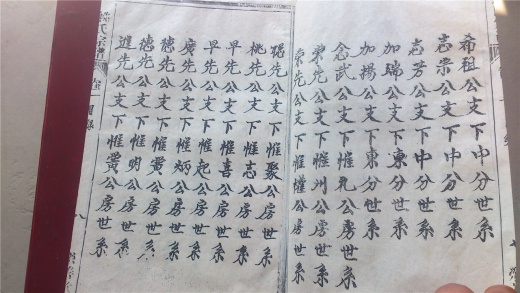 希祖公支下中分世系
志崇公支下中分世系
志芳公支下中分世系
加瑞公支下東分世系
加揚公支下東分世系
念武公支下惟九公房世系
東先公支下惟州公房世系
榮先公支下惟權公房世系
聰先公支下惟聚公房世系
桃先公支下惟志公房世系
早先公支下惟喜公房世系
早先公支下惟起公房世系
廣先公支下惟炳公房世系
德先公支下惟黄公房世系
德先公支下惟明公房世系
進先公支下惟賞公房世系
氏宗譜
八